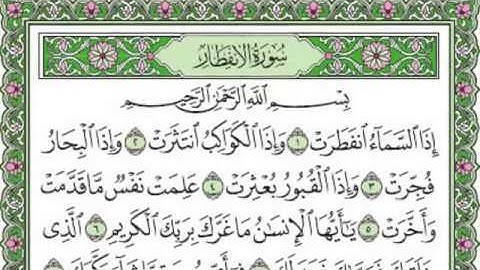 سُورَةُ الِانفِطَارِ
بِسْمِ اللَّهِ الرَّحْمَٰنِ الرَّحِيمِ
إِذَا السَّمَاءُ انفَطَرَتْ ١ وَإِذَا الْكَوَاكِبُ انتَثَرَتْ ٢ وَإِذَا الْبِحَارُ
فُجِّرَتْ ٣ وَإِذَا الْقُبُورُ بُعْثِرَتْ ٤ عَلِمَتْ نَفْسٌ مَّا قَدَّمَتْ
وَأَخَّرَتْ ٥ يَا أَيُّهَا الْإِنسَانُ مَا غَرَّكَ بِرَبِّكَ الْكَرِيمِ ٦ الَّذِي